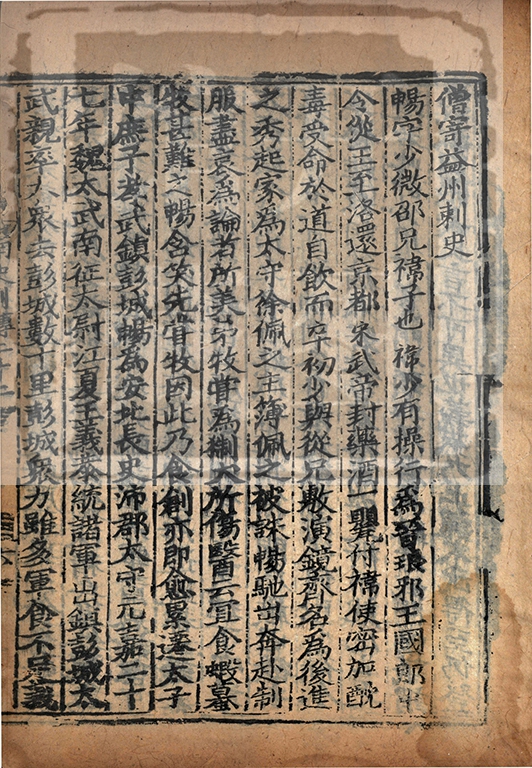 僧寄益州刺史
暢字少微邵兄禕子也禕少有操行爲晉琅邪王國郎中
令從王至洛還京都宋武帝封藥酒一甖付禕使密加酖
毒受命於道自飲而卒初少與從兄敷演鏡齊名爲後進
之秀起家爲太守徐佩之主薄佩之被誅暢馳出奔赴制
服盡哀爲論者所美弟牧嘗爲猘犬所傷醫云宜食蝦蟇
牧甚難之暢含笑先甞牧因此乃食創亦即愈累遷太子
中庶子孝武鎮彭城暢爲安北長史沛郡太守元嘉二十
七年魏太武南征太尉江夏王義恭統諸軍出鎮彭城太
武親率大衆去彭城數十里彭城衆力雖多軍食不足義